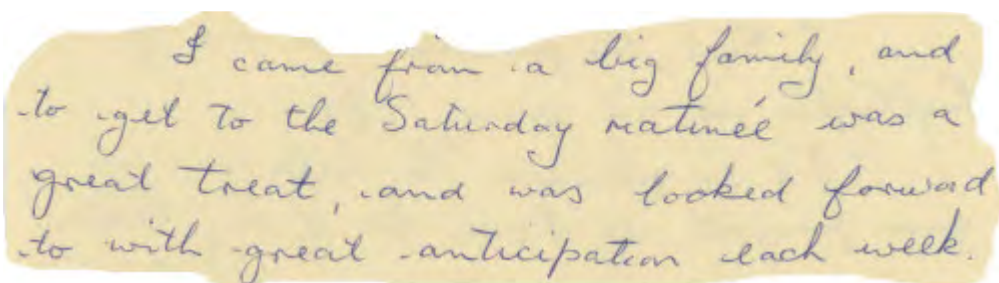 I came from a big family, and
to get to the Saturday matineé was a
great treat, and was looked forward
to with great anticipation each week.